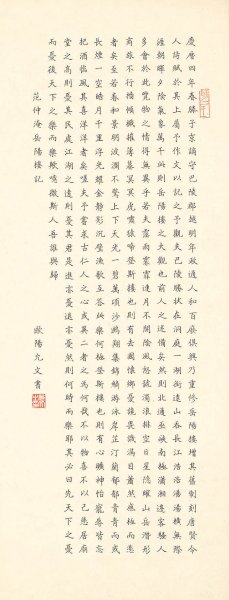 慶曆四年春滕子京謫守巴陵郡越明年政通人和百廢俱興乃重修岳陽樓增其舊制刻唐賢今
人詩賦於其上屬予作文以記之予觀夫巴陵勝狀在洞庭一湖銜遠山吞長江浩浩湯湯橫無際
涯朝暉夕陰氣象萬千此則岳陽樓之大觀也前人之述備矣然則北通巫峽南極瀟湘遷客騷人
多會於此覽物之情得無異乎若夫霪雨霏霏連月不開陰風怒號濁浪排空日星隱曜山岳潛形
商旅不行檣傾楫摧薄暮冥冥虎嘯猿啼登斯樓也則有去國懷鄉憂讒畏譏滿目蕭然感極而悲
者矣至若春和景明波瀾不驚上下天光一碧萬頃沙鷗翔集錦鱗游泳岸芷汀蘭郁郁青青而或
長煙一空皓月千里浮光耀金靜影沉璧漁歌互答此樂何極登斯樓也則有心曠神怡寵辱皆忘
把酒臨風其喜洋洋者矣嗟夫予嘗求古仁人之心或異二者之為何哉不以物喜不以己悲居廟
堂之高則憂其民處江湖之遠則憂其君是進亦憂退亦憂然則何時而樂耶其必曰先天下之憂
而憂後天下之樂而樂歟噫微斯人吾誰與歸
范仲淹岳陽樓記
歐陽允文書